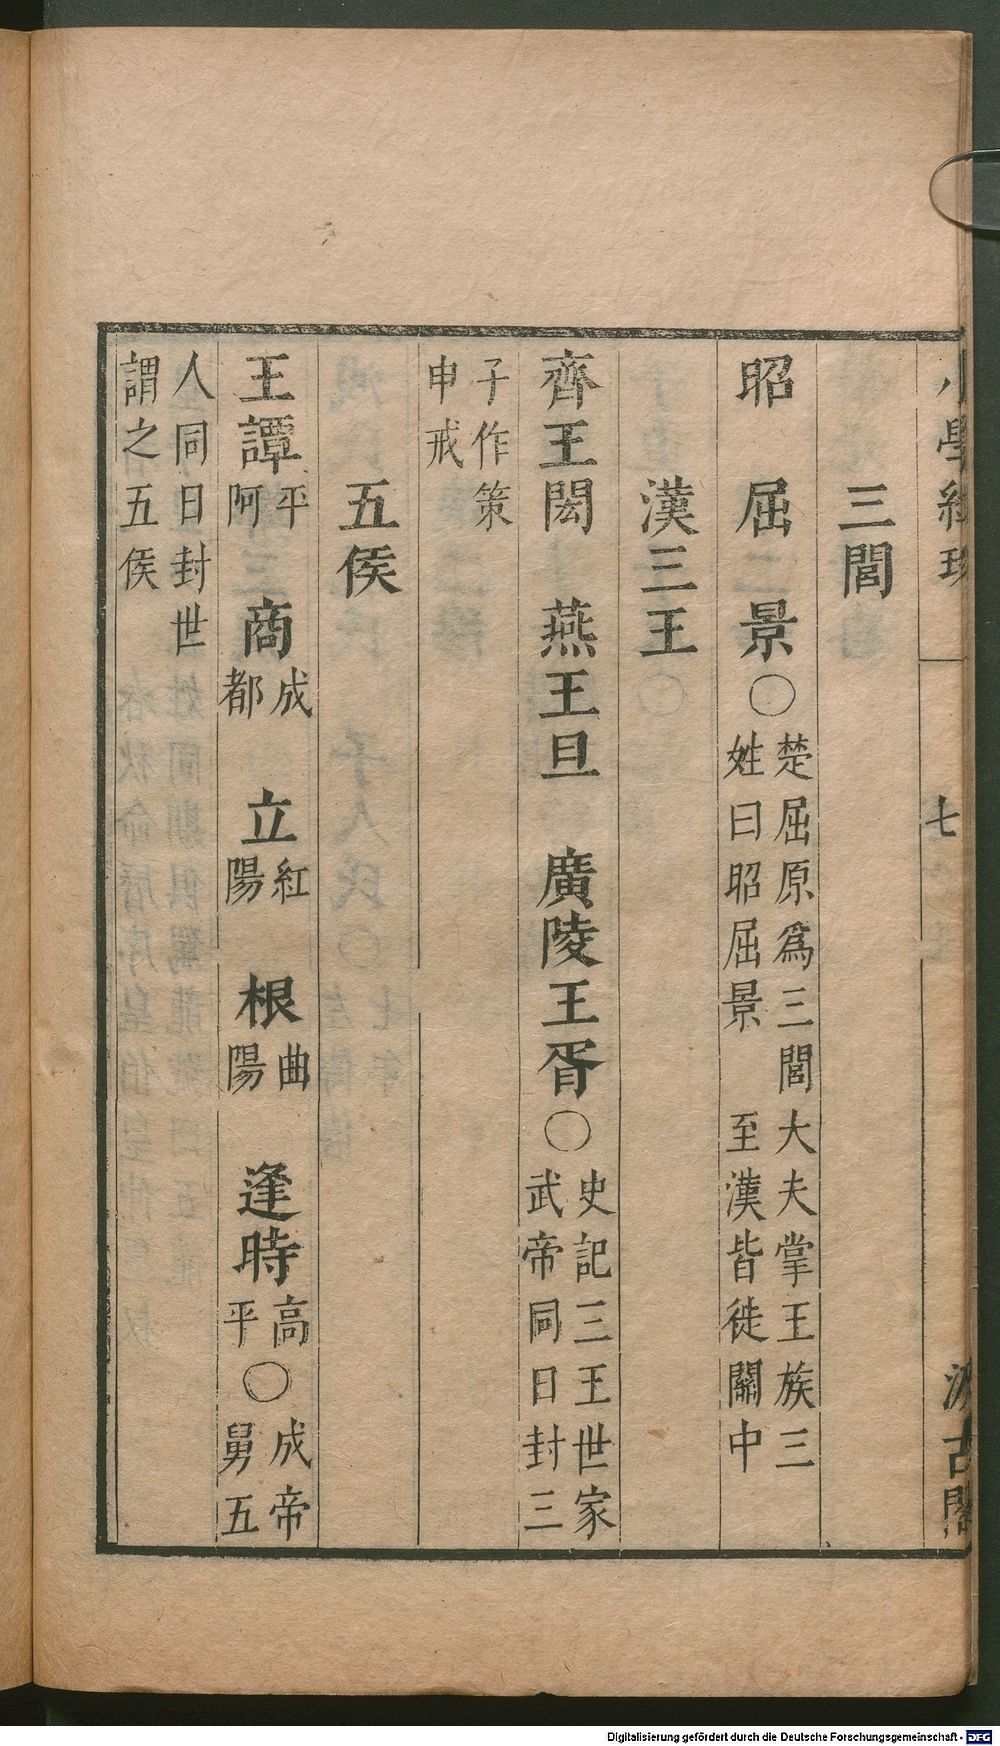 小學紺珠 七 汲古閣
三閭
昭 屈 景〇楚屈原爲三閭大夫掌王族三
姓曰昭屈景 至漢皆徙關中
漢三王
齊王閎 燕王旦 廣陵王胥〇史記三王世家
武帝同日封三
子作策
申戒
五侯
王譚平阿 商成都 立紅陽 根曲陽 逢時高平〇成帝
舅五
人同日封世
謂之五侯
Digitalisierung gefördert durch die Deutsche Forschungsgemeinschaft - DFG